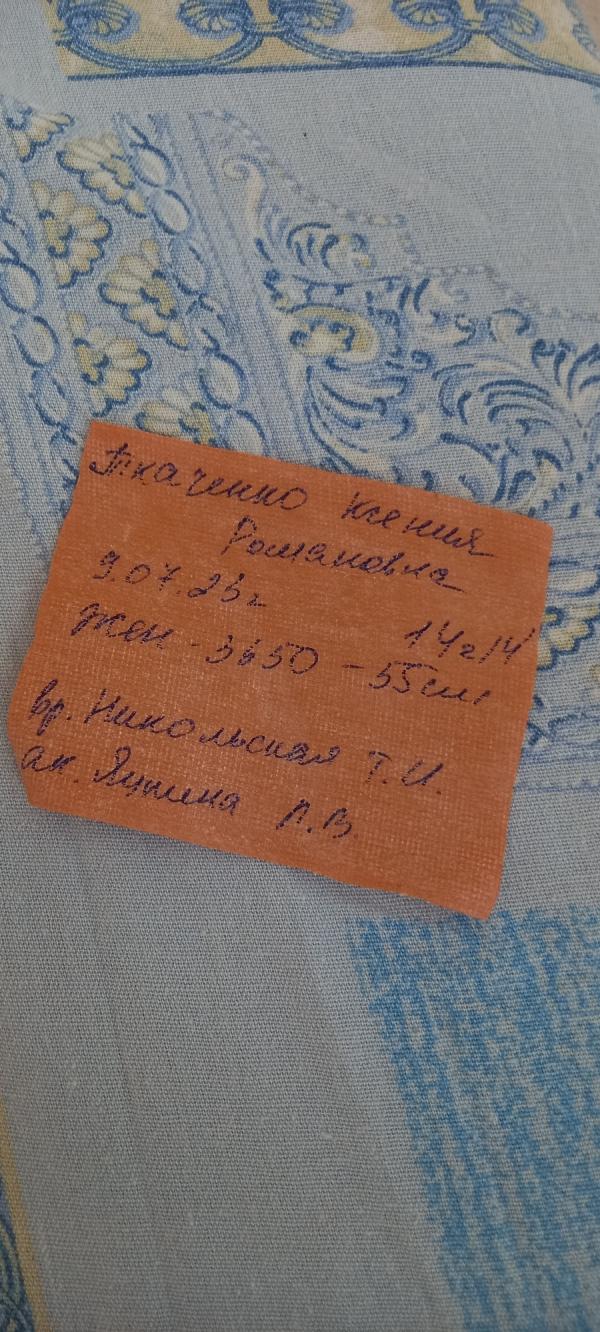 Ткаченко Ксения
Романовна
9.07.23г 14г14'
жен - 3650 - 55см
вр. Никольская Т.И.
ак. Яцкина Л.В.